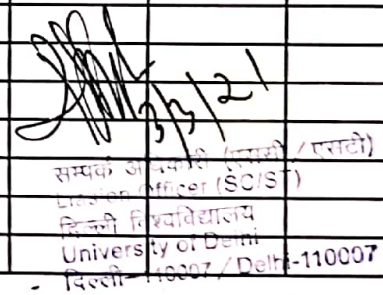 3/3/21
सम्पर्क अधिकारी (एससी / एसटी)
Liaison Officer (SC/ST)
दिल्ली विश्वविद्यालय
University of Delhi
दिल्ली-110007 / Delhi-110007